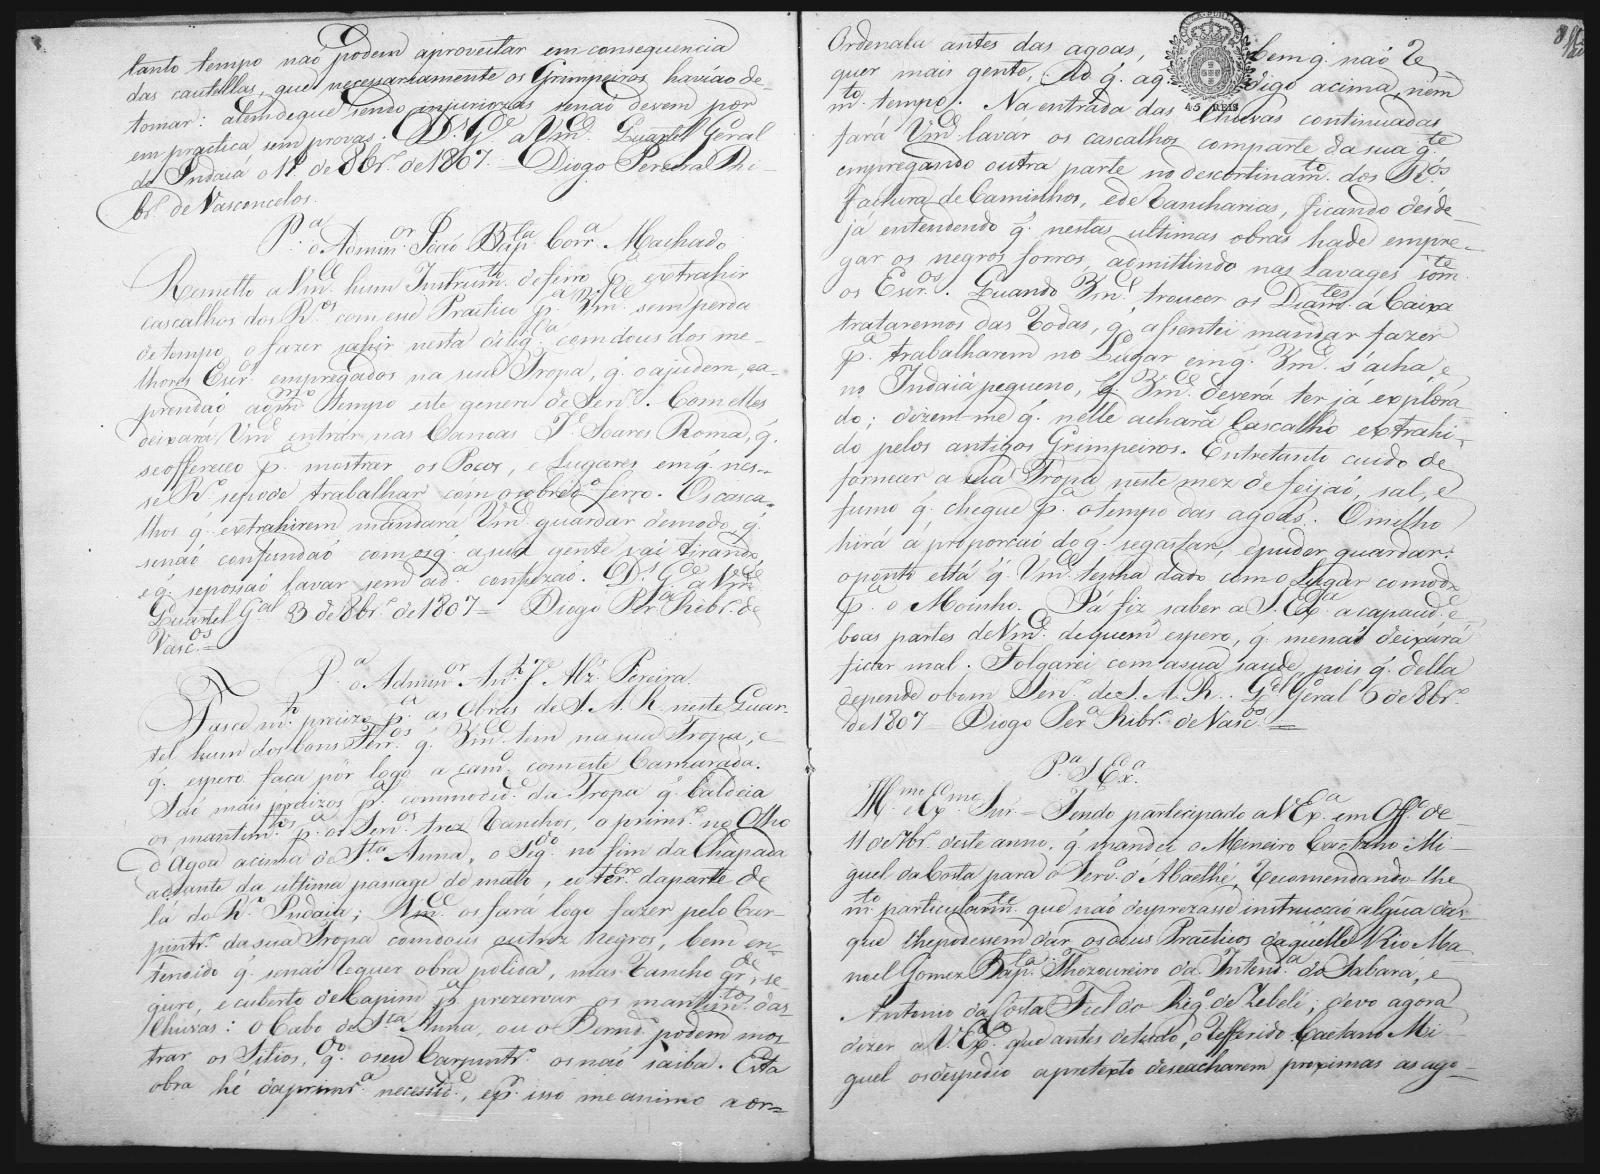 tanto tempo naõ podem aproveitar em consequencia
das cautellas, que necessariamente os Grimpeiros haviaõ de
tomar: alem de que sendo injuriozas senaõ devem pôr
em practica sem provas. Ds. Gde. a Vmce. Quartel Geral
do Indaiá o 1º de 8br.º de 1807 = Diogo Pereira Ri-
br.º de Vasconcelos.
P.ª o Admin.or Joaõ Bap.ta Corr.ª Machado
Remetto a Vmce. hum Instrum.to de ferro p.ª extrahir
cascalhos dos R.os com esse Practico p.ª Vmce. sem perda
de tempo o fazer sahir nesta dilig.cia com dous dos me-
lhores Escr.os empregados na sua Tropa, q. o ajudem, ea-
prendaõ ao m.mo tempo este genero de Serv.º. Com elles
deixará Vmce. entrar nas Canoas J.e Soares Roma, q.
se offereceo p.ª mostrar os Pocos, e Lugares em q. nes-
se R.º se pode trabalhar com o sobred.º ferro. Os casca-
lhos q. extrahirem mandará Vmce. guardar de modo, q.
senaõ confundaõ com os q. a sua gente vai tirando,
e q. se possaõ lavar sem ad.ª confuzaõ. Ds. Gde. a Vmce.
Quartel G.al 3 de 8br.º de 1807 = Diogo Per.ª Ribr.º de
Vasc.os =
P.ª o Admin.or Ant.º J.e Alz. Pereira
Fasce m.to precizo p.ª as Obras de S. A. R. neste Quar-
tel hum dos bons Ferr.os q. Vmce. tem na sua Tropa, e
q. espero faça pôr logo a cam.º com este Camarada.
Saõ mais precizos p.ª commodid.e da Tropa q. baldeia
os mantim.tos p.ª os Serv.os trez Ranchos, o primr.º no Olho
d'Agoa acima de S.ta Anna, o Seg.do no fim da Chapada
adiante da ultima passage de mato, e o terc.ro da parte de
lá do R.º Indaiá; Vmce. os fará logo fazer pelo Car-
pintr.º da sua Tropa com dous outros negros, bem en-
tendido q. senaõ requer obra polida, mas Rancho gr.de, se-
guro, e cuberto de Capim p.ª prezervar os mantim.tos das
Chuvas: o Cabo de S.ta Anna, ou o Bernd.º podem mos-
trar os Sitios, q.do o seu Carpintr.º os naõ saiba. Esta
obra hé da primr.ª necessid.e, e p.r isso me animo a or=
Ordenala antes das agoas, bem q. naõ re-
quer mais gente, do q. a q. digo acima, nem
m.to tempo. Na entrada das Chuvas continuadas
fará Vmce. lavar os cascalhos com parte da sua g.te
empregando outra parte no descortinam.to dos R.os
factura de Caminhos, e de Rancharias, ficando desde
já entendendo q. nestas ultimas obras hade empre-
gar os negros forros, admittindo nas Lavages som.te
os Escr.os. Quando Vmce. troucer os Diam.tes á Caixa
trataremos das Rodas, q. assentei mandar fazer
p.ª trabalharem no Lugar em q. Vmce. s'acha, e
no Indaiá pequeno, q. Vmce. deverá ter já explora-
do; dizem-me q. nelle achará Cascalho extrahi-
do pelos antigos Grimpeiros. Entretanto cuido de
fornecer a sua Tropa neste mez de feijaõ, sal, e
fumo q. chegue p.ª o tempo das agoas. O milho
hirá a proporçaõ do q. se gastar, e puder guardar:
o ponto está q. Vmce. tenha dado com o Lugar comodo
p.ª o Moinho. Já fiz saber a S. Ex.ª a capacid.e, e
boas partes de Vmce. de quem espero, q. me naõ deixará
ficar mal. Folgarei com a sua saude, pois q. della
depende o bom Serv.º de S. A. R. Q.el Geral 6 de 8br.º
de 1807 = Diogo Per.ª Ribr.º de Vasc.os =
P.ª S. Ex.ª
Ill.mo e Ex.mo Snr. = Tendo participado a V. Ex.ª em Off.º de
11 de 7br.º deste anno, q. mandei o Mineiro Caetano Mi-
guel da Costa para o Serv.º d'Abaethé, recomendando lhe
m.to particularm.te que naõ desprezasse instrucçaõ algũa das
que lhe podessem dar os dous Practicos daquelle Rio Ma-
noel Gomez Bap.ta Thezoureiro da Intend.ª do Sabará, e
Antonio da Costa Fiel do Reg.º de Zebelé; devo agora
dizer a V. Ex.ª que antes de tudo, o refferido Caetano Mi-
guel os despedio a pretexto de se acharem proximas as ago-
45 REIS